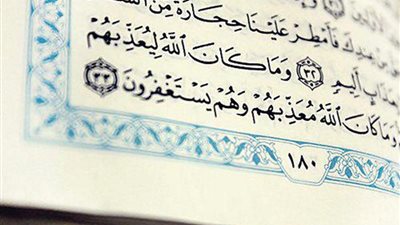 عِندِكَ فَأَمْطِرْ عَلَيْنَا حِجَارَةً مِّنَ
بِعَذَابٍ أَلِيمٍ ٣٢ وَمَا كَانَ ٱللَّهُ لِيُعَذِّبَهُمْ
وَمَا كَانَ ٱللَّهُ مُعَذِّبَهُمْ وَهُمْ يَسْتَغْفِرُونَ ٣٣
١٨٠